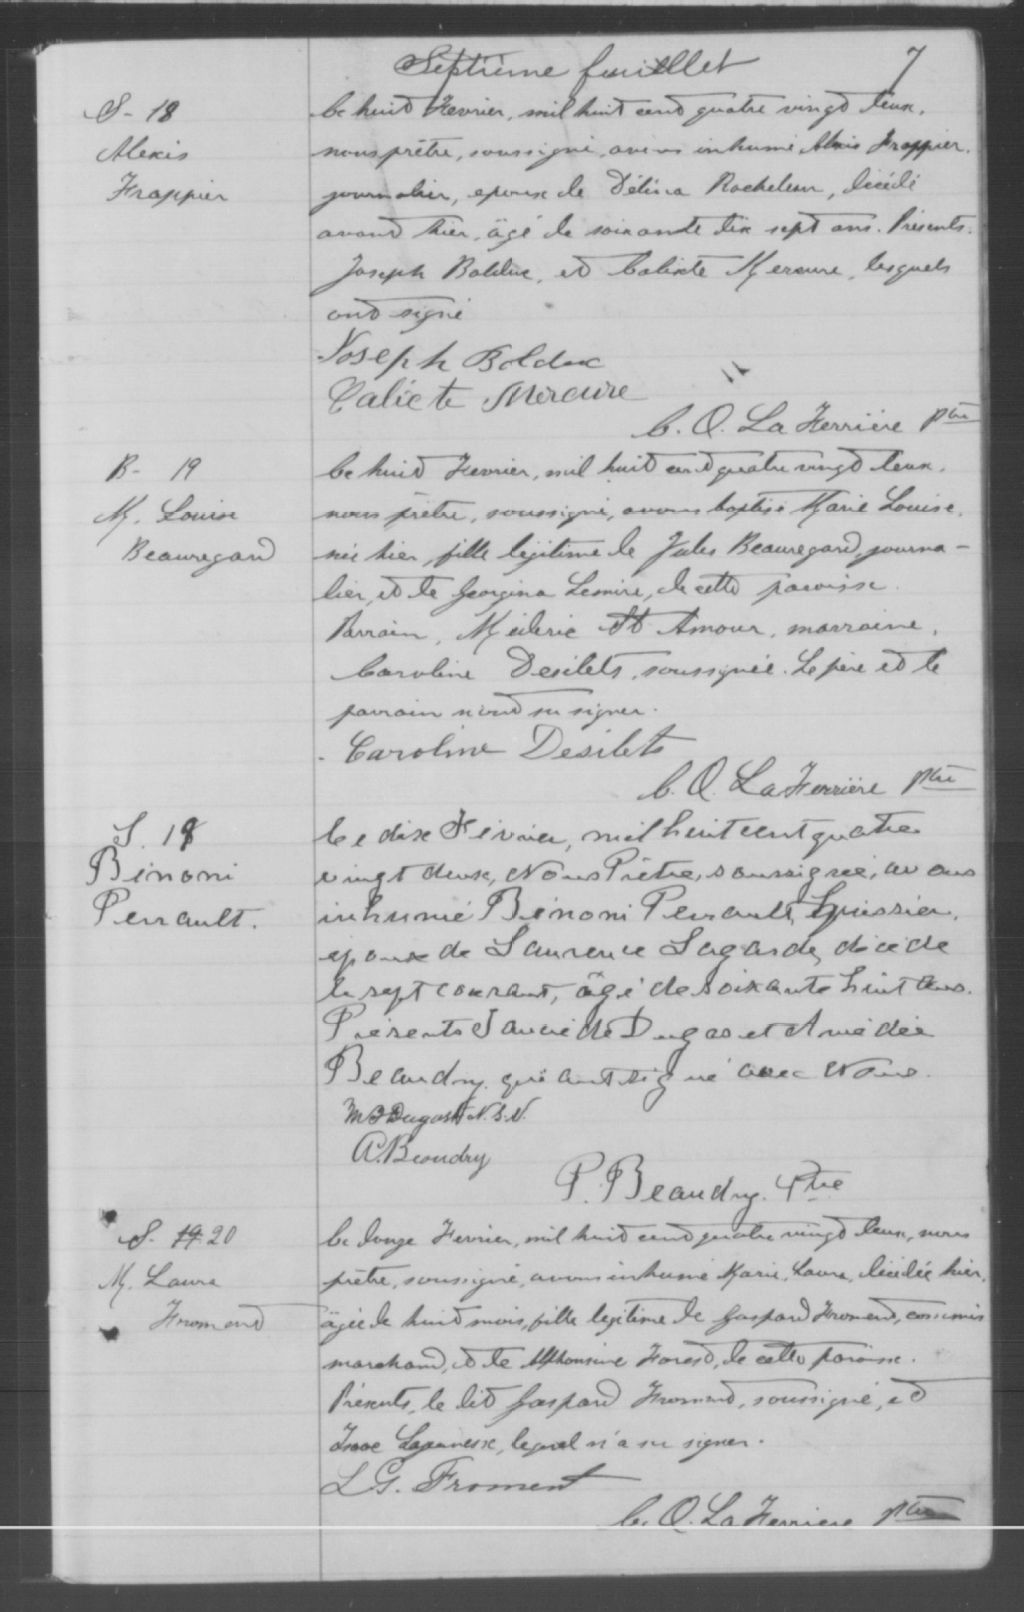 Septième feuillet 7
S- 18
Alexis
Frappier
Le huit Fevrier, mil huit cent quatre vingt deux,
nous prêtre, soussigné, avons inhumé Alexis Frappier,
journalier, epoux de Délina Rocheleau, décédé
avant hier, âgé de soixante dix sept ans. Présents,
Joseph Bolduc, et Calixte Mercure, lesquels
ont signé
Joseph Bolduc
Calicte Mercure
C. O. La Ferrière ptre
B- 19
M. Louise
Beauregard
Le huit Fevrier, mil huit cent quatre vingt deux,
nous prêtre, soussigné, avons baptisé Marie Louise,
née hier, fille légitime de Jules Beauregard, journa-
lier, et de Georgina Lemire, de cette paroisse.
Parrain, Méderic St Amour, marraine,
Caroline Desilets, soussignée. Le père et le
parrain n'ont su signer.
Caroline Desilets
C. O. La Ferrière ptre
S. 18
Bénoni
Perrault.
Le dix Février, mil huit cent quatre
vingt deux, Nous Prêtre, soussigné, avons
inhumé Bénoni Perrault, huissier,
époux de Laurence Lagarde, décédé
le sept courant, âgé de soixante huit ans.
Présents Dugas et Amédée
Beaudry qui ont signé avec Nous.
Dugas N. S. N.
A. Beaudry
P. Beaudry. Ptre
S. 19 20
M. Laura
Froment
Le douze Fevrier, mil huit cent quatre vingt deux, nous
prêtre, soussigné, avons inhumé Marie, Laura, décédée hier,
âgée de huit mois, fille legitime de Gaspard Froment, commis
marchand, et de Alphonsine Forest, de cette paroisse.
Présents, le dit Gaspard Froment, soussigné, et
Isaac Lajeunesse, lequel n'a su signer.
L. G. Froment
C. O. La Ferriere ptre